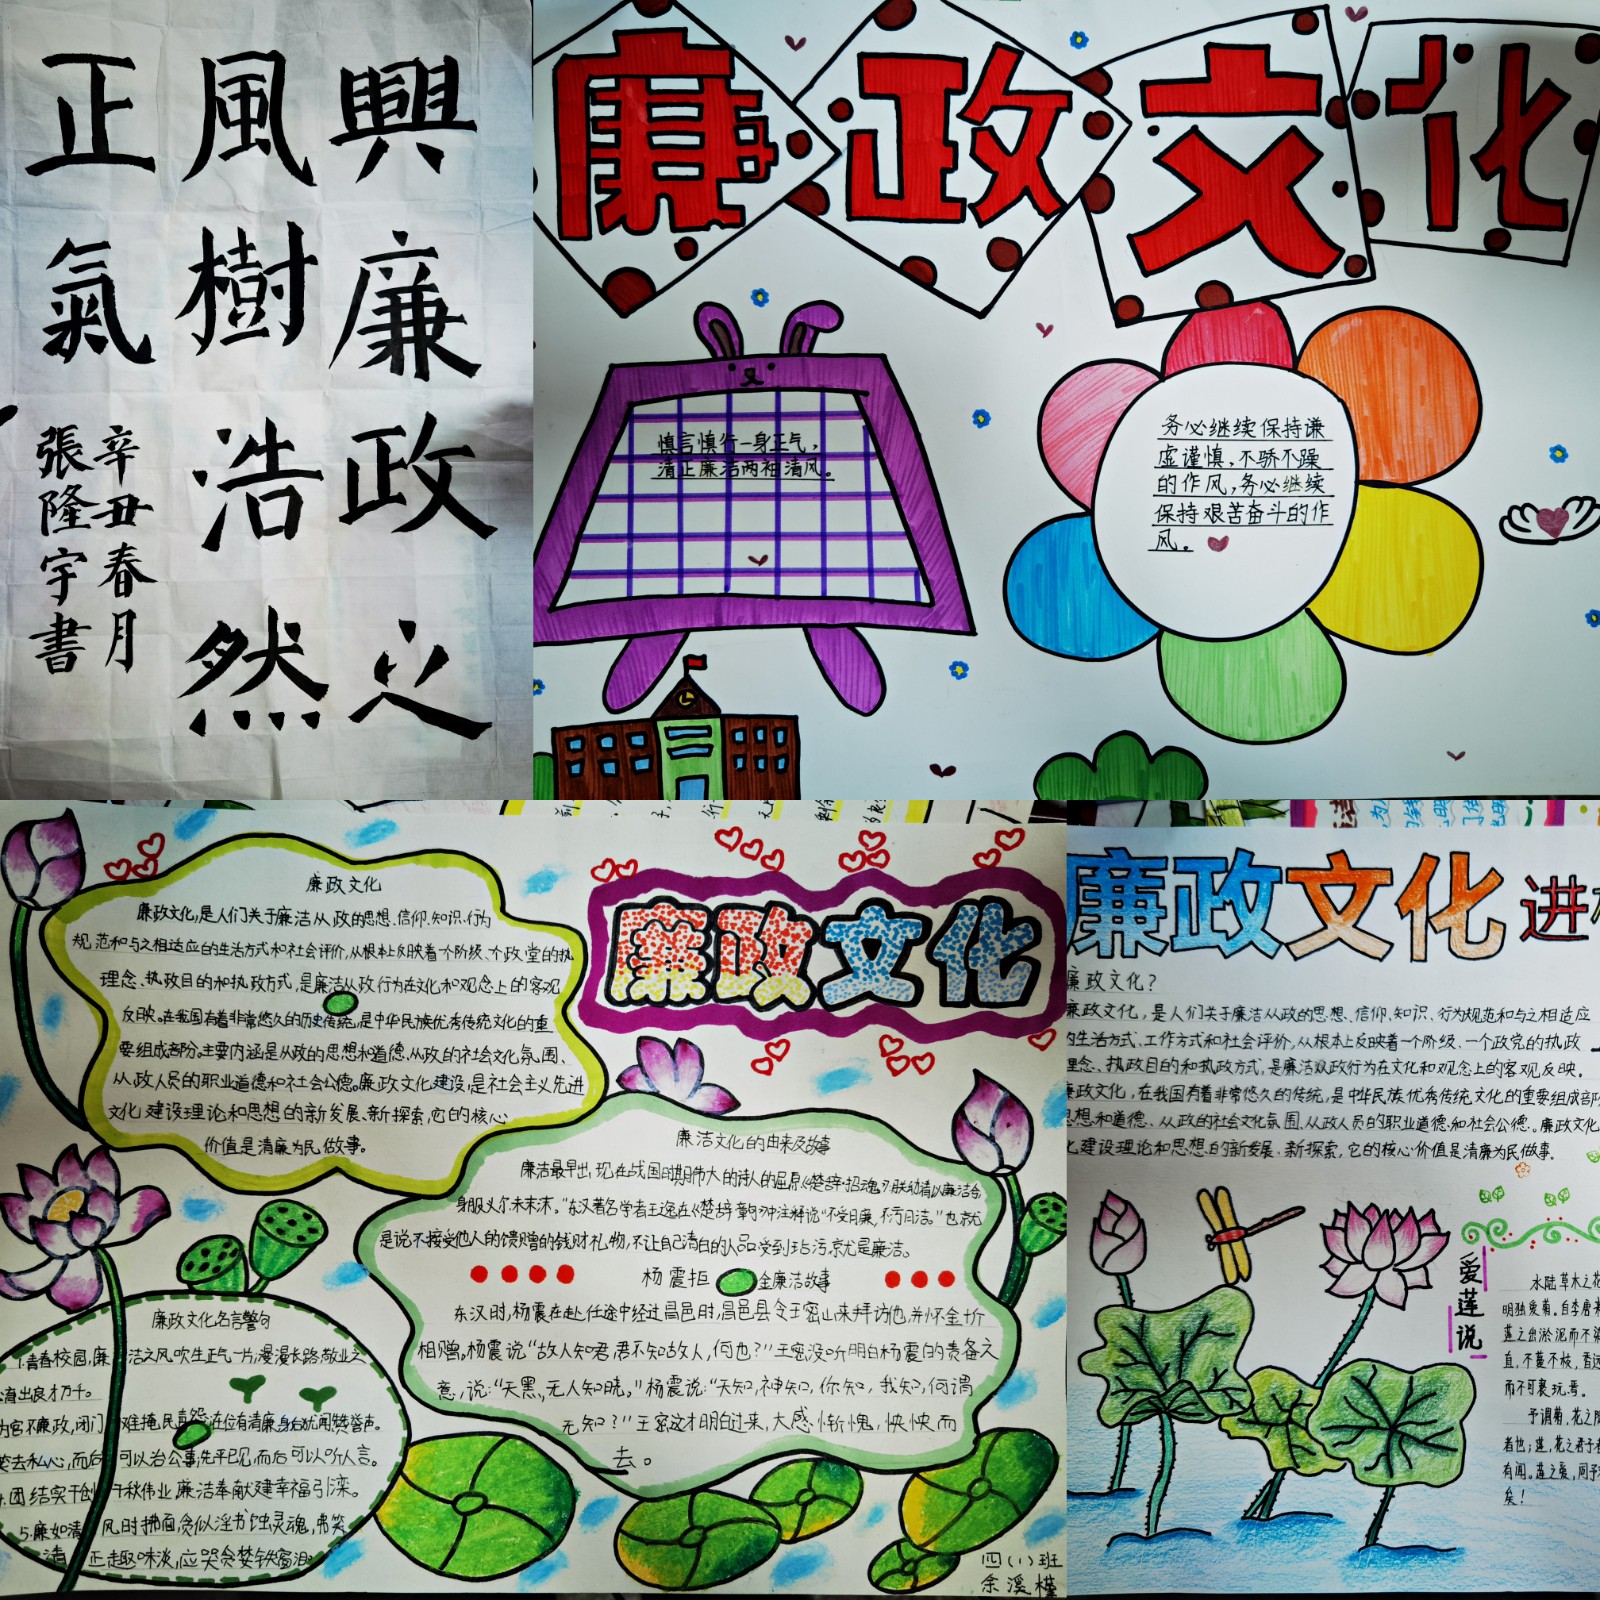 興廉政之
風樹浩然
正氣
辛丑春月
張隆宇書
廉政文化
慎言慎行一身正气，
清正廉洁两袖清风。
务必继续保持谦
虚谨慎，不骄不躁
的作风，务必继续
保持艰苦奋斗的作
风。
廉政文化
廉政文化
廉政文化，是人们关于廉洁从政的思想、信仰、知识、行为
规范和与之相适应的生活方式和社会评价，从根本上反映着一个阶级、个政党的执
理念、执政目的和执政方式，是廉洁从政行为在文化和观念上的客观
反映。在我国有着非常悠久的历史传统，是中华民族优秀传统文化的重
要组成部分。主要内涵是从政的思想和道德、从政的社会文化氛围、
从政人员的职业道德和社会公德。廉政文化建设，是社会主义先进
文化建设理论和思想的新发展、新探索，它的核心
价值是清廉为民做事。
廉洁文化的由来及故事
廉洁最早出现在战国时期伟大的诗人的屈原《楚辞·招魂》
东汉著名学者王逸在《楚辞章句》中注释说“不受曰廉，不污曰洁。”也就
是说不接受他人的馈赠的钱财礼物，不让自己清白的人品受到玷污，就是廉洁。
杨震拒金廉洁故事
东汉时，杨震在赴任途中经过昌邑时，昌邑县令王密山来拜访他，并怀金十斤
相赠。杨震说“故人知君，君不知故人，何也？”王密没听明白杨震的责备之
意，说：“天黑，无人知晓。”杨震说：“天知，神知，你知，我知，何谓
无知？”王密这才明白过来，大感惭愧，怏怏而
去。
廉政文化名言警句
1.青春校园，廉洁之风吹生正气一片，漫漫长路，敬业之
道出良才万千。
为官不廉政，闭门难掩民声怨；在位有清廉，身名犹闻赞誉声。
去私心，而后可以治公事；先平己见，而后可以听人言。
4.团结实干创千秋伟业，廉洁奉献建幸福引滦。
5.廉如清风时拂面，贪似淫书蚀灵魂，弗笑
清正趣味淡，应哭贪婪铁窗泪
四(1)班
余溪槿
廉政文化进
廉政文化？
廉政文化，是人们关于廉洁从政的思想、信仰、知识、行为规范和与之相适应
的生活方式、工作方式和社会评价，从根本上反映着一个阶级、一个政党的执政
理念、执政目的和执政方式，是廉洁从政行为在文化和观念上的客观反映。
廉政文化，在我国有着非常悠久的传统，是中华民族优秀传统文化的重要组成部
思想和道德、从政的社会文化氛围、从政人员的职业道德和社会公德。廉政文化
化建设理论和思想的新发展、新探索，它的核心价值是清廉为民做事。
爱莲说
水陆草木之花
明独爱菊。自李唐
莲之出淤泥而不染
直，不蔓不枝，香远
而不可亵玩焉。
予谓菊，花之隐
者也；莲，花之君子者
有闻。莲之爱，同予
矣！